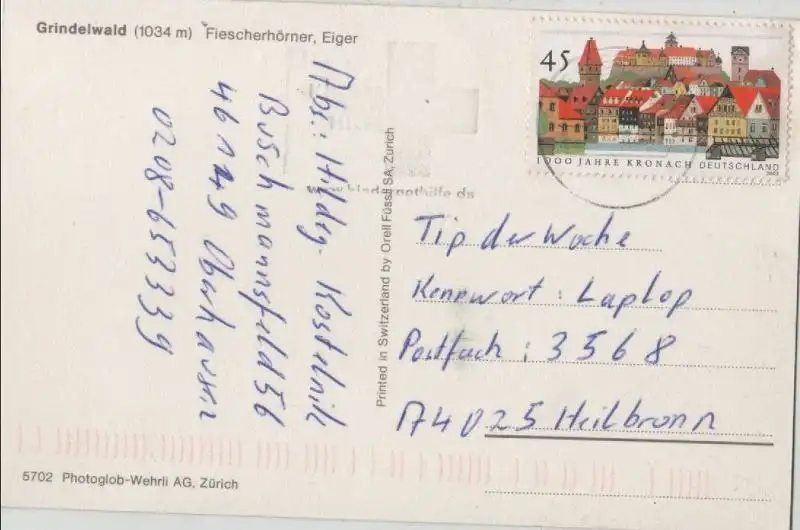 Grindelwald (1034 m) Fiescherhörner, Eiger
Abs.: Hildeg. Kostelnik
Buschmannsfeld 56
46149 Oberhausen
0208-653339
www.kindernothilfe.de
Printed in Switzerland by Orell Füssli SA, Zürich
45
1000 JAHRE KRONACH DEUTSCHLAND
2003
Tip der Woche
Kennwort: Laptop
Postfach: 3568
74025 Heilbronn
5702 Photoglob-Wehrli AG, Zürich